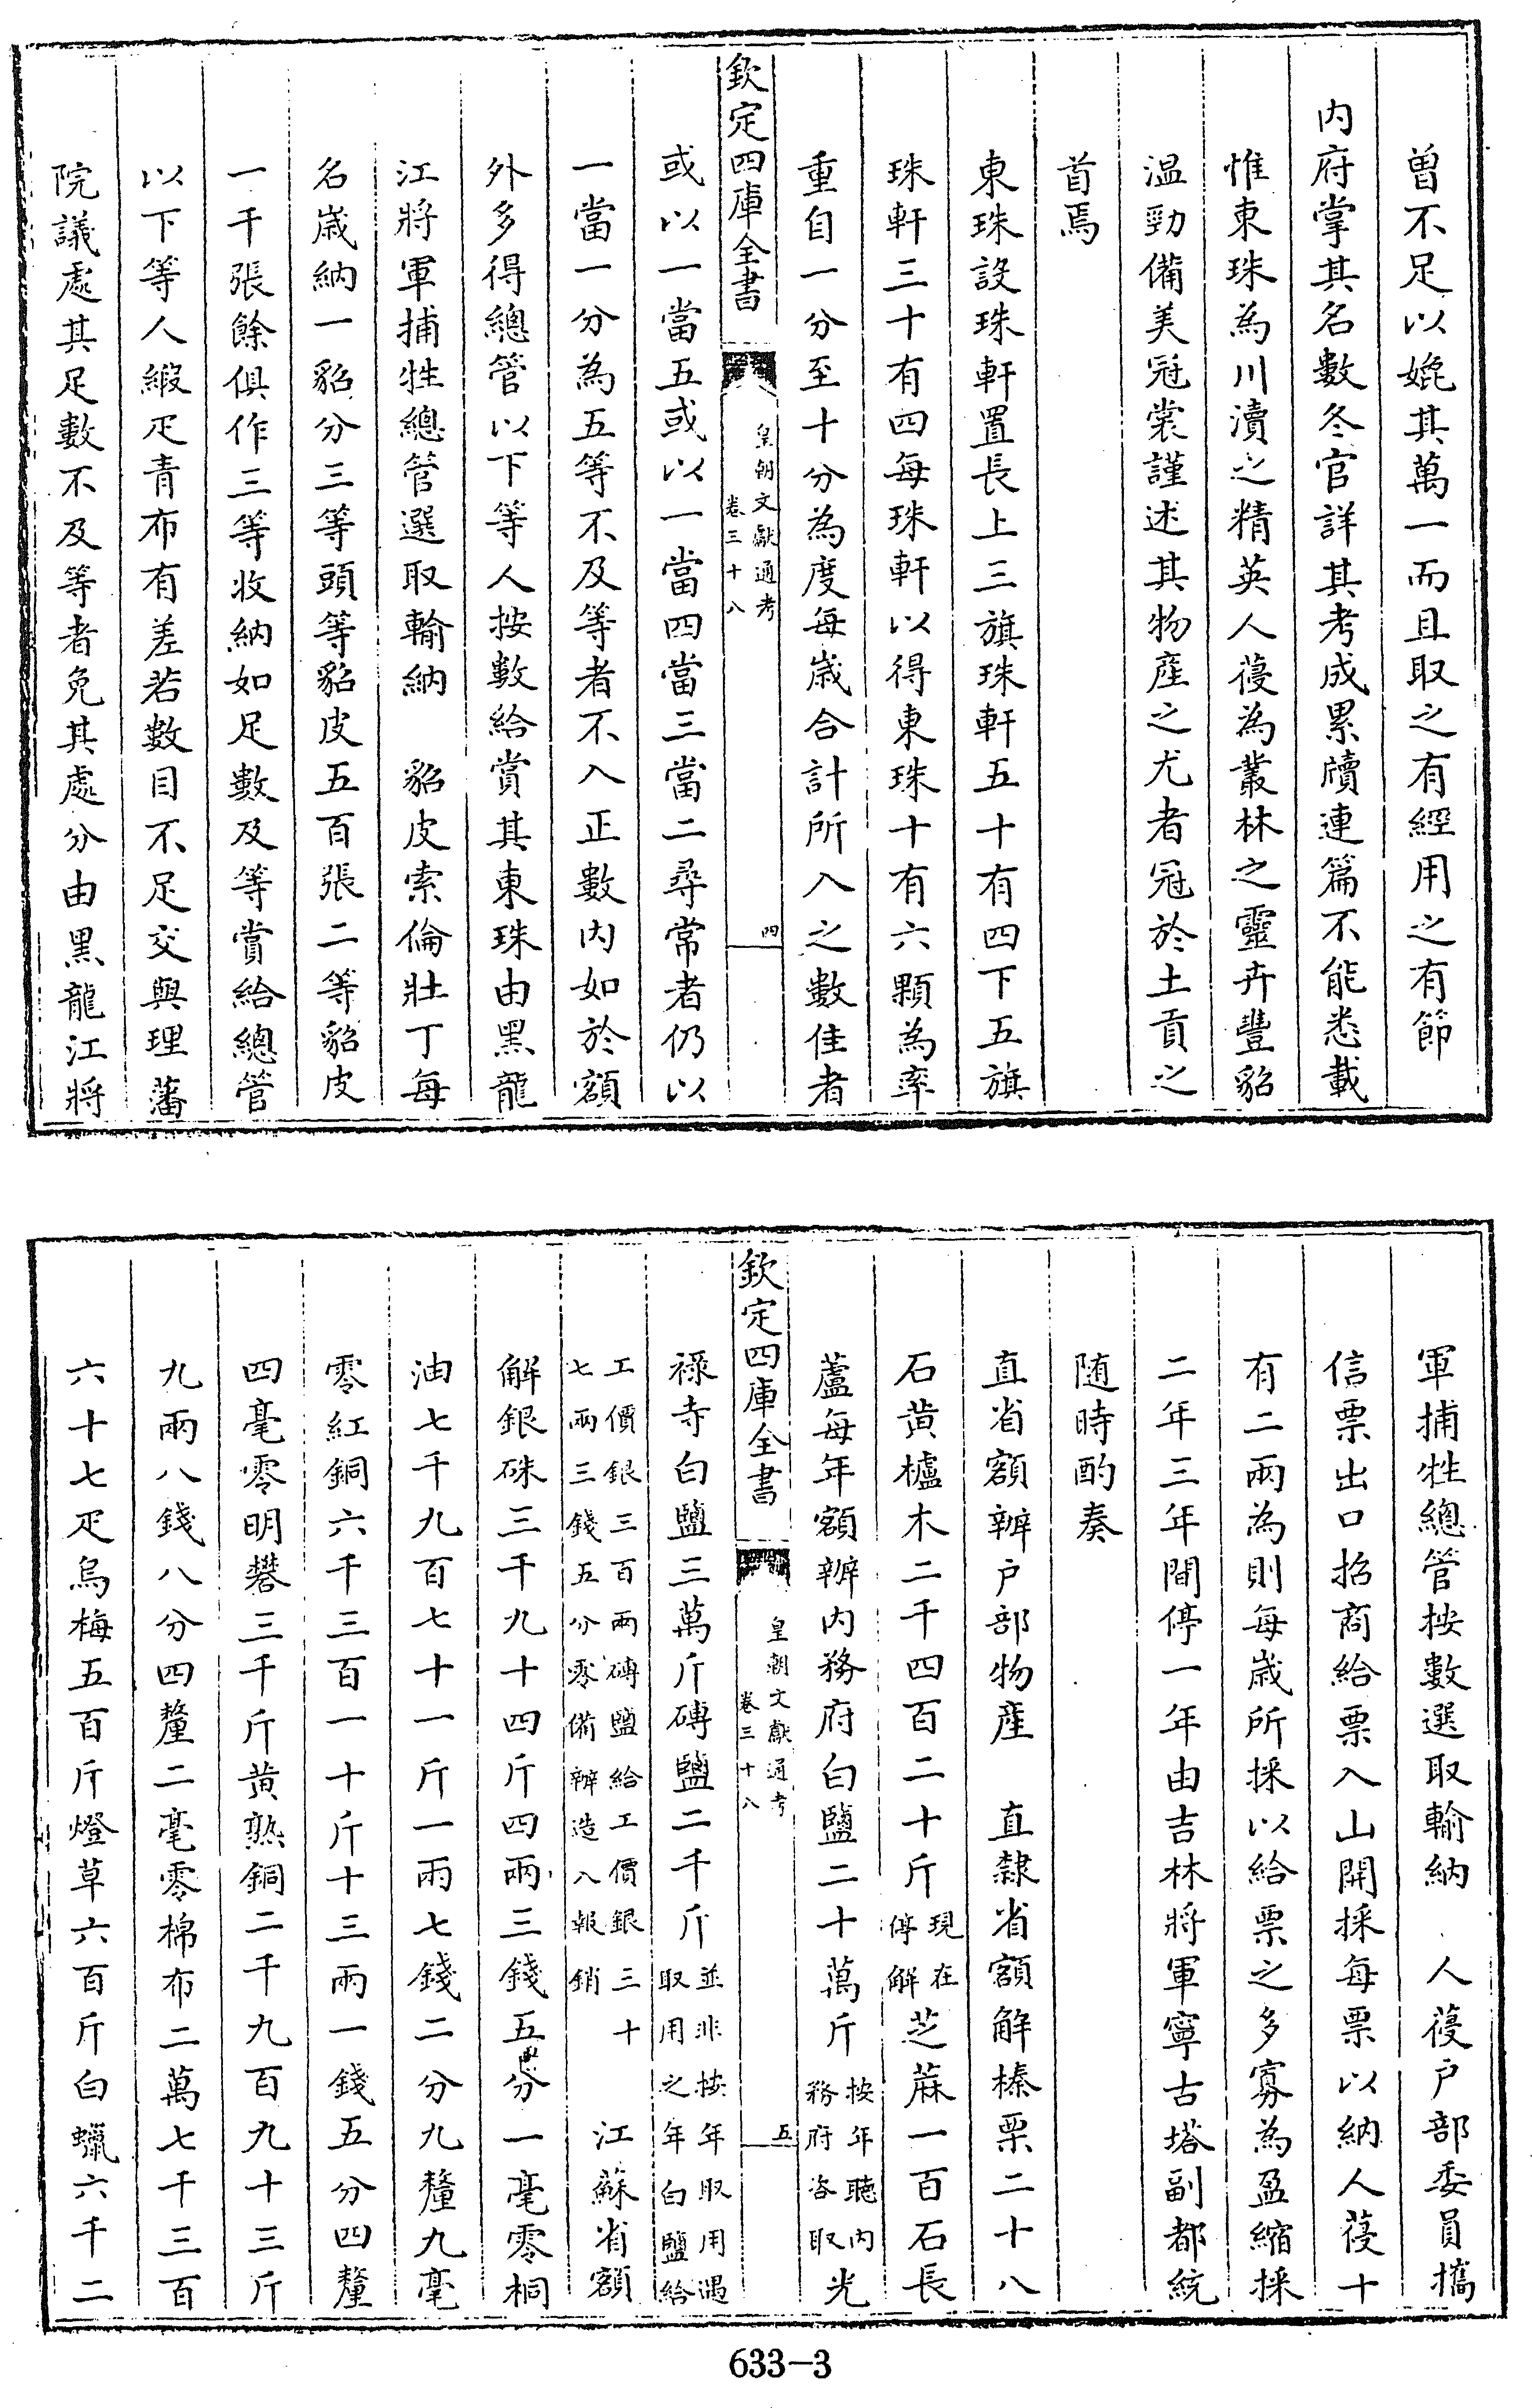 曾不足以㜕其萬一而且取之有經用之有節
内府掌其名數冬官詳其考成累牘連篇不能悉載
惟東珠為川瀆之精英人葠為叢林之靈卉豐貂
温勁備美冠裳謹述其物産之尤者冠於土貢之
首焉
東珠設珠軒置長上三旗珠軒五十有四下五旗
珠軒三十有四每珠軒以得東珠十有六顆為率
重自一分至十分為度每嵗合計所入之數佳者
欽定四庫全書
皇朝文獻通考
卷三十八
四
或以一當五或以一當四當三當二尋常者仍以
一當一分為五等不及等者不入正數内如於額
外多得總管以下等人按數給賞其東珠由黑龍
江將軍捕牲總管選取輸納 貂皮索倫壯丁每
名嵗納一貂分三等頭等貂皮五百張二等貂皮
一千張餘俱作三等收納如足數及等賞給總管
以下等人緞疋青布有差若數目不足交與理藩
院議處其足數不及等者免其處分由黑龍江將
軍捕牲總管按數選取輸納 人葠户部委員攜
信票出口招商給票入山開採每票以納人葠十
有二兩為則每嵗所採以給票之多寡為盈縮採
二年三年間停一年由吉林將軍寧古塔副都統
随時酌奏
直省額辦户部物産 直隸省額解榛栗二十八
石黄櫨木二千四百二十斤現在停解芝蔴一百石長
蘆每年額辦内務府白鹽二十萬斤按年聽内務府咨取光
欽定四庫全書
皇朝文獻通考
卷三十八
五
禄寺白鹽三萬斤磚鹽二千斤並非按年取用遇取用之年白鹽給
工價銀三百兩磚鹽給工價銀三十七兩三錢五分零備辦造入報銷 江蘇省額
解銀硃三千九十四斤四兩三錢五分一毫零桐
油七千九百七十一斤一兩七錢二分九釐九毫
零紅銅六千三百一十斤十三兩一錢五分四釐
四毫零明礬三千斤黄熟銅二千九百九十三斤
九兩八錢八分四釐二毫零棉布二萬七千三百
六十七疋烏梅五百斤燈草六百斤白蠟六千二
633-3